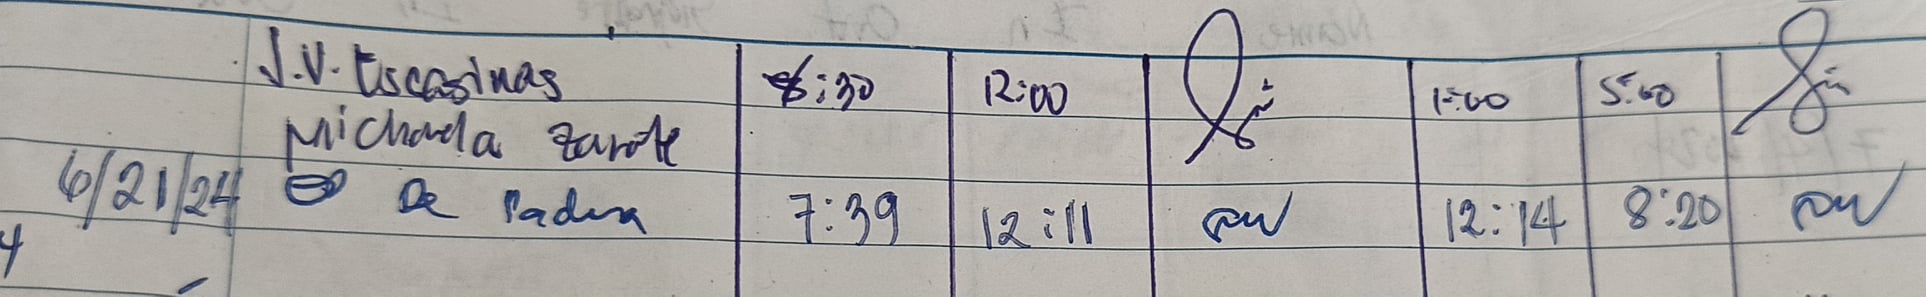 J.V. Escasinas 8:30 12:00 1:00 5:00
Michaela Zarate
6/21/24 De Padua 7:39 12:11 12:14 8:20
4